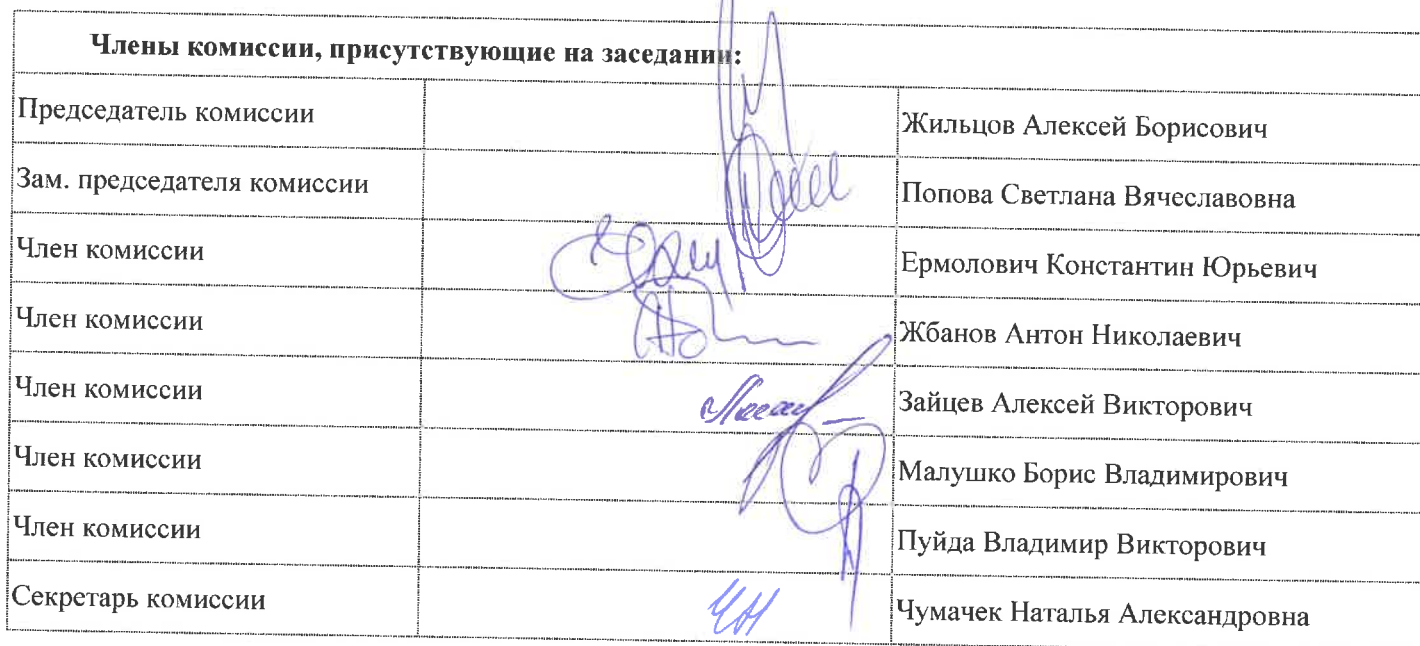 Члены комиссии, присутствующие на заседании:
Председатель комиссии Жильцов Алексей Борисович
Зам. председателя комиссии Попова Светлана Вячеславовна
Член комиссии Ермолович Константин Юрьевич
Член комиссии Жбанов Антон Николаевич
Член комиссии Зайцев Алексей Викторович
Член комиссии Малушко Борис Владимирович
Член комиссии Пуйда Владимир Викторович
Секретарь комиссии Чумачек Наталья Александровна